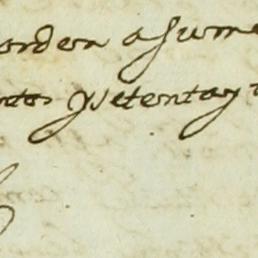 orden asume
ntos ysetentay